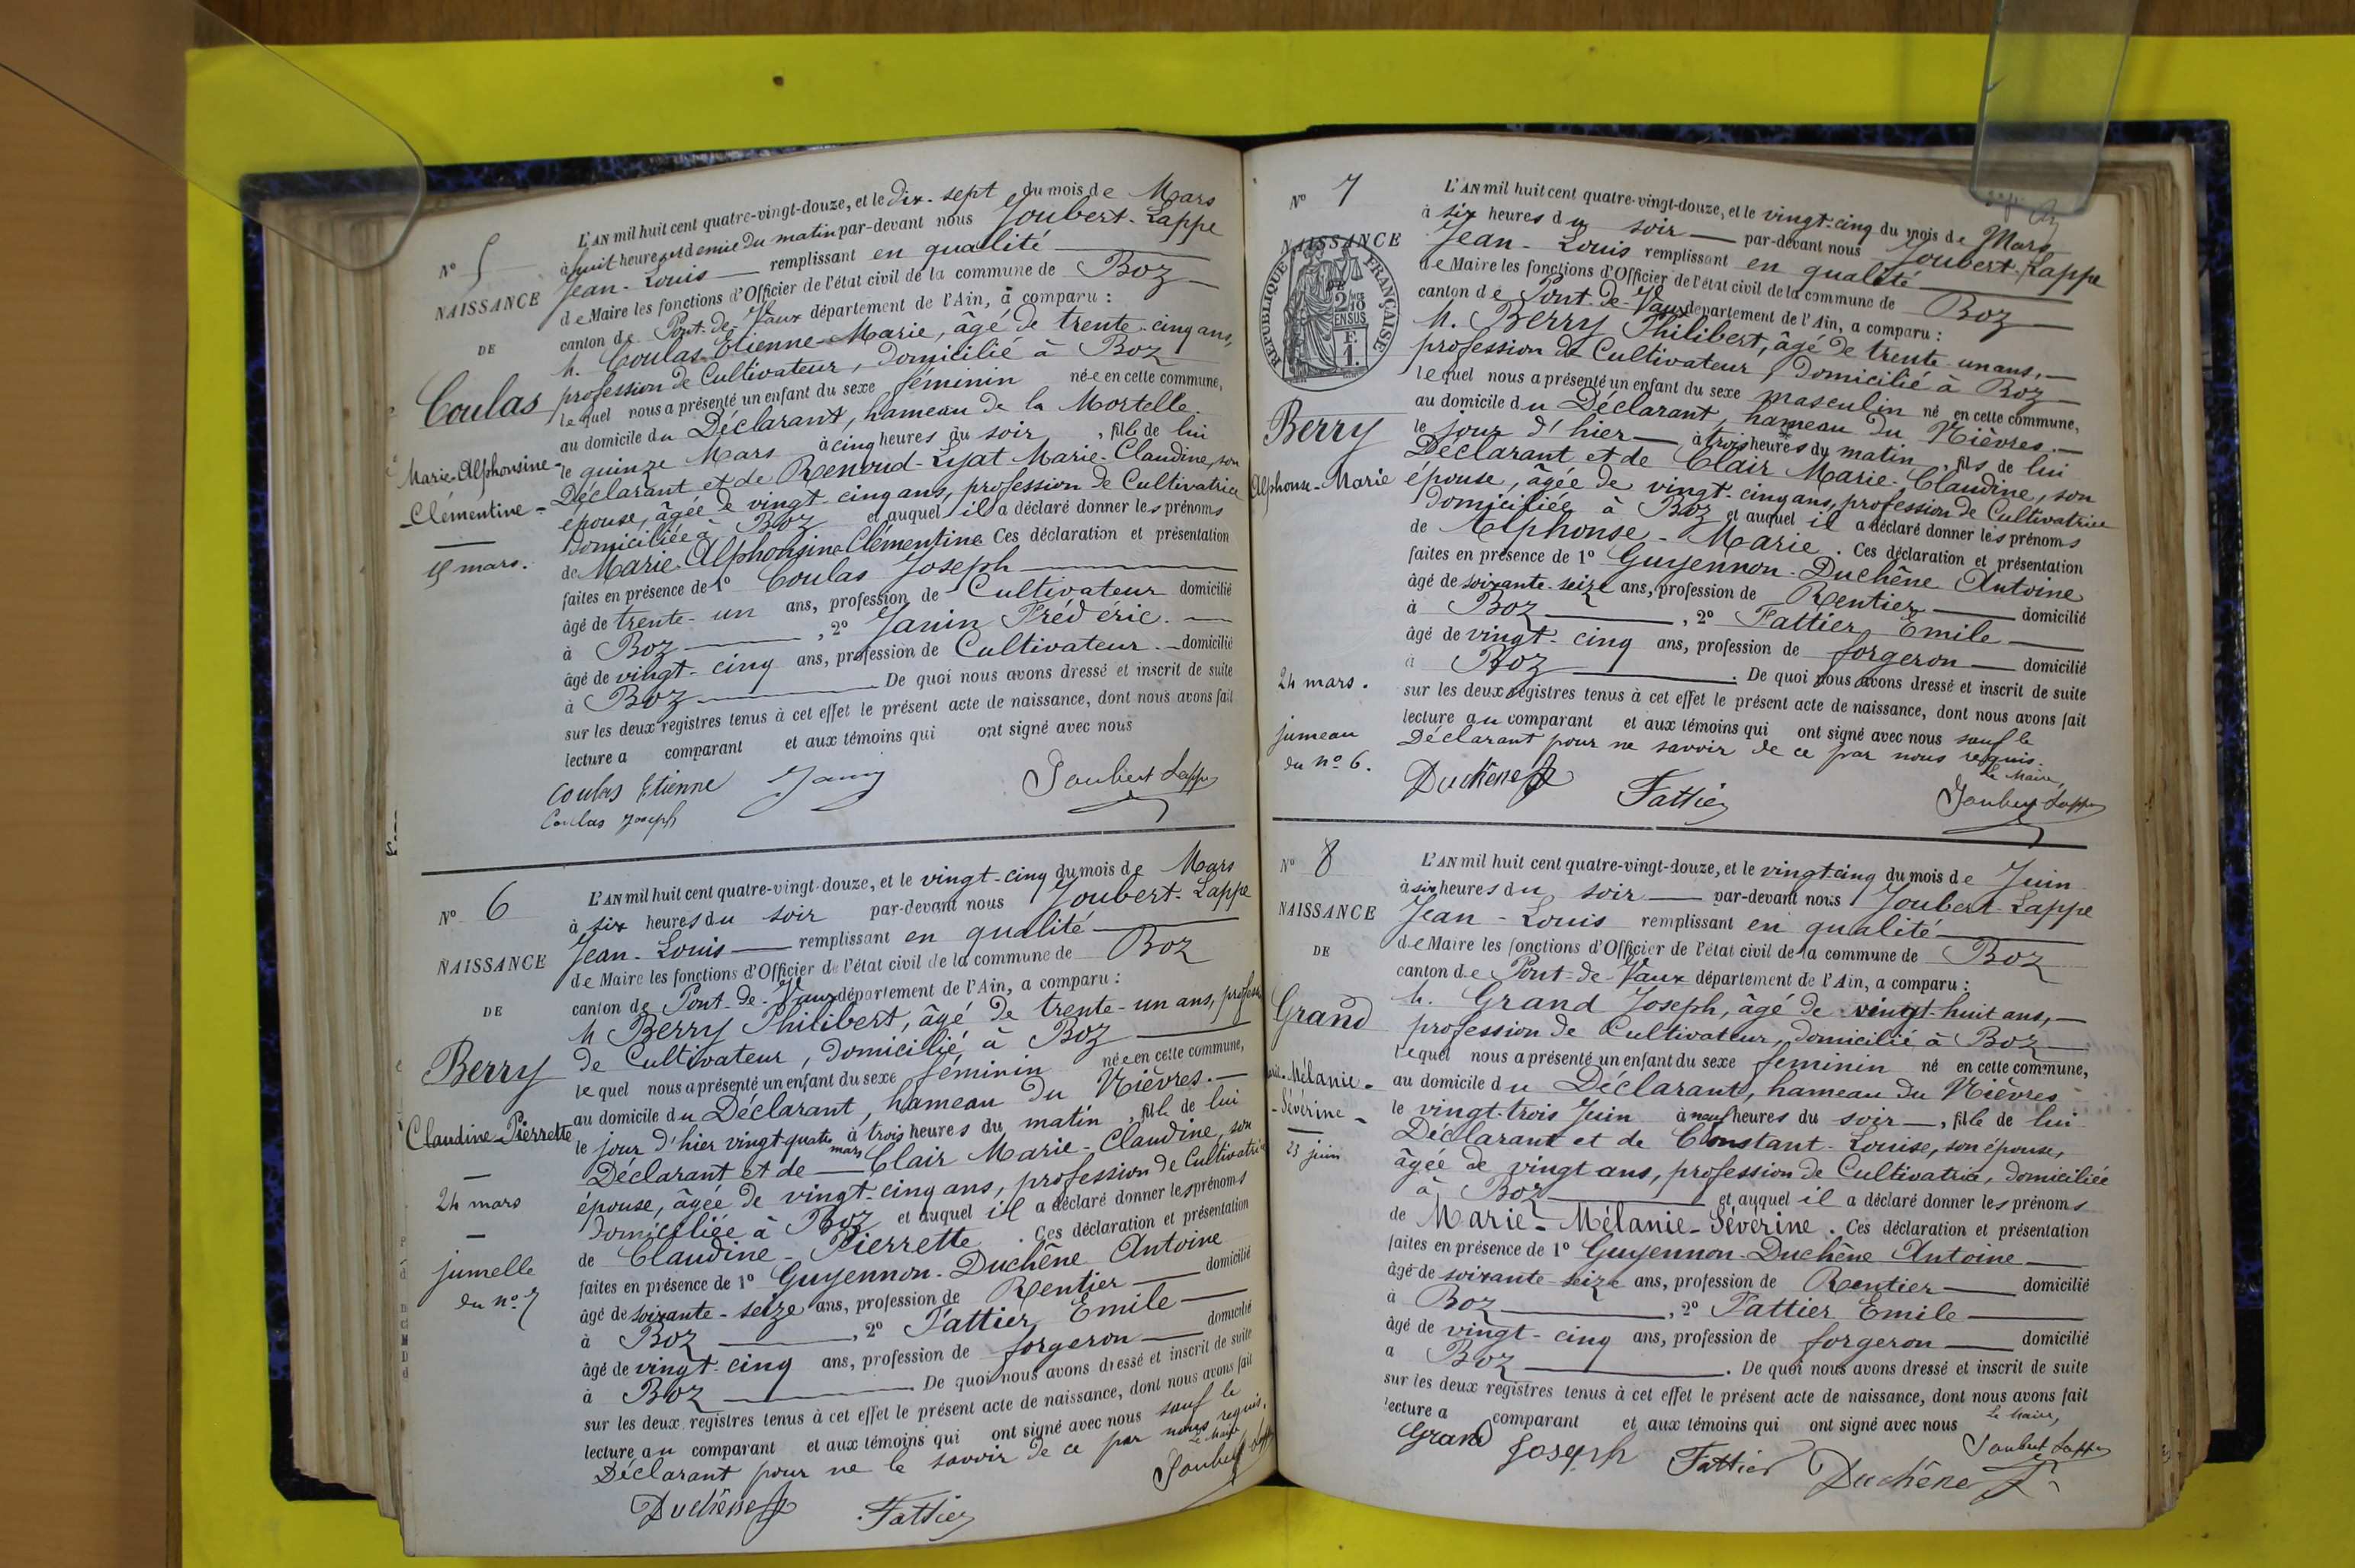 N° 5
NAISSANCE
DE
Coulas
Marie-Alphonsine-
-Clémentine-
15 mars.
L'AN mil huit cent quatre-vingt-douze, et le dix-sept du mois de Mars
à huit heures et demie du matin par-devant nous Joubert-Lappe
Jean-Louis remplissant en qualité
de Maire les fonctions d'Officier de l'état civil de la commune de Boz
canton de Pont-de-Vaux département de l'Ain, a comparu :
M. Coulas Etienne-Marie, âgé de trente-cinq ans,
profession de Cultivateur, domicilié à Boz
lequel nous a présenté un enfant du sexe féminin née en cette commune,
au domicile du Déclarant, hameau de la Mortelle.
le quinze Mars à cinq heures du soir, fille de lui
Déclarant et de Renoud-Lyat Marie-Claudine, son
épouse, âgée de vingt-cinq ans, profession de Cultivatrice
domiciliée à Boz et auquel il a déclaré donner les prénoms
de Marie-Alphonsine Clémentine Ces déclaration et présentation
faites en présence de 1° Coulas Joseph
âgé de trente-un ans, profession de Cultivateur domicilié
à Boz, 2° Janin Frédéric.
âgé de vingt-cinq ans, profession de Cultivateur.- domicilié
à Boz De quoi nous avons dressé et inscrit de suite
sur les deux registres tenus à cet effet le présent acte de naissance, dont nous avons fait
lecture a comparant et aux témoins qui ont signé avec nous
Coulas Etienne Janin Joubert Lappe
Coulas Joseph
N° 6
NAISSANCE
DE
Berry
Claudine-Pierrette
24 mars
jumelle
du n° 7
L'AN mil huit cent quatre-vingt-douze, et le vingt-cinq du mois de Mars
à six heures du soir par-devant nous Joubert-Lappe
Jean-Louis remplissant en qualité
de Maire les fonctions d'Officier de l'état civil de la commune de Boz
canton de Pont-de-Vaux département de l'Ain, a comparu :
M Berry Philibert, âgé de trente-un ans, profession
de Cultivateur, domicilié à Boz
lequel nous a présenté un enfant du sexe féminin née en cette commune,
au domicile du Déclarant, hameau du Nièvres.
le jour d'hier vingt-quatre mars à trois heures du matin, fille de lui
Déclarant et de Clair Marie-Claudine, son
épouse, âgée de vingt-cinq ans, profession de Cultivatrice
domiciliée à Boz et auquel il a déclaré donner les prénoms
de Claudine-Pierrette. Ces déclaration et présentation
faites en présence de 1° Guyennon-Duchêne Antoine
âgé de soixante-seize ans, profession de Rentier domicilié
à Boz, 2° Fattier Emile
âgé de vingt-cinq ans, profession de forgeron domicilié
à Boz De quoi nous avons dressé et inscrit de suite
sur les deux registres tenus à cet effet le présent acte de naissance, dont nous avons fait
lecture au comparant et aux témoins qui ont signé avec nous sauf le
Déclarant pour ne le savoir de ce par nous requis.
Le Maire
Duchêne Fattier Joubert Lappe
N° 7
NAISSANCE
DE
RÉPUBLIQUE FRANÇAISE
2/10 EN SUS
1 F.
Berry
Alphonse-Marie
24 mars.
jumeau
du n° 6.
L'AN mil huit cent quatre-vingt-douze, et le vingt-cinq du mois de Mars
à six heures du soir par-devant nous Joubert-Lappe
Jean-Louis remplissant en qualité
de Maire les fonctions d'Officier de l'état civil de la commune de Boz
canton de Pont-de-Vaux département de l'Ain, a comparu :
M. Berry Philibert, âgé de trente-un ans,
profession de Cultivateur, domicilié à Boz
lequel nous a présenté un enfant du sexe masculin né en cette commune,
au domicile du Déclarant, hameau du Nièvres.
le jour d'hier à trois heures du matin, fils de lui
Déclarant et de Clair Marie-Claudine, son
épouse, âgée de vingt-cinq ans, profession de Cultivatrice
domiciliée à Boz et auquel il a déclaré donner les prénoms
de Alphonse-Marie. Ces déclaration et présentation
faites en présence de 1° Guyennon-Duchêne Antoine
âgé de soixante-seize ans, profession de Rentier domicilié
à Boz, 2° Fattier Emile
âgé de vingt-cinq ans, profession de forgeron domicilié
à Boz. De quoi nous avons dressé et inscrit de suite
sur les deux registres tenus à cet effet le présent acte de naissance, dont nous avons fait
lecture au comparant et aux témoins qui ont signé avec nous sauf le
Déclarant pour ne savoir de ce par nous requis.
Le Maire,
Duchêne Fattier Joubert Lappe
N° 8
NAISSANCE
DE
Grand
-Mélanie-
-Séverine-
23 juin
L'AN mil huit cent quatre-vingt-douze, et le vingt cinq du mois de Juin
à six heures du soir par-devant nous Joubert-Lappe
Jean-Louis remplissant en qualité
de Maire les fonctions d'Officier de l'état civil de la commune de Boz
canton de Pont-de-Vaux département de l'Ain, a comparu :
M. Grand Joseph, âgé de vingt-huit ans,
profession de Cultivateur, domicilié à Boz
lequel nous a présenté un enfant du sexe feminin né en cette commune,
au domicile du Déclarant, hameau du Nièvres
le vingt-trois Juin à neuf heures du soir, fille de lui
Déclarant et de Constant-Louise, son épouse,
âgée de vingt ans, profession de Cultivatrice, domiciliée
à Boz et auquel il a déclaré donner les prénoms
de Marie-Mélanie-Séverine. Ces déclaration et présentation
faites en présence de 1° Guyennon-Duchêne Antoine
âgé de soixante-seize ans, profession de Rentier domicilié
à Boz, 2° Fattier Emile
âgé de vingt-cinq ans, profession de forgeron domicilié
a Boz. De quoi nous avons dressé et inscrit de suite
sur les deux registres tenus à cet effet le présent acte de naissance, dont nous avons fait
lecture a comparant et aux témoins qui ont signé avec nous
Le Maire,
Grand Joseph Fattier Duchêne Joubert Lappe